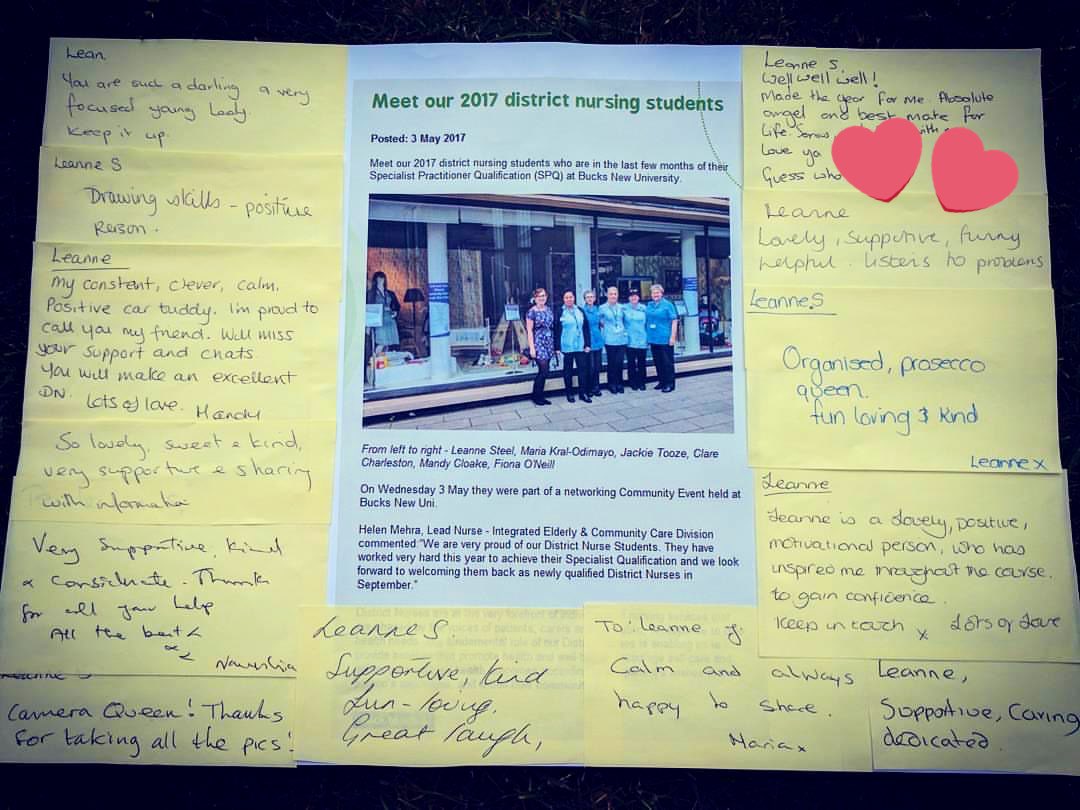 Lean.
You are such a darling a very
focused young lady.
Keep it up.
Leanne S
Drawing skills - positive
Person.
Leanne
My constent, clever, calm.
Positive car buddy. I'm proud to
call you my friend. Will miss
your support and chats.
You will make an excellent
DN. Lots of love. Mandy
So lovely, sweet & kind,
very supportive & sharing
with information
Very Supportive, Kind
& Considerate. Thanks
for all your help
All the best
Camera Queen! Thanks
for taking all the pics!
Meet our 2017 district nursing students
Posted: 3 May 2017
Meet our 2017 district nursing students who are in the last few months of their
Specialist Practitioner Qualification (SPQ) at Bucks New University.
From left to right - Leanne Steel, Maria Kral-Odimayo, Jackie Tooze, Clare
Charleston, Mandy Cloake, Fiona O'Neill
On Wednesday 3 May they were part of a networking Community Event held at
Bucks New Uni.
Helen Mehra, Lead Nurse - Integrated Elderly & Community Care Division
commented:"We are very proud of our District Nurse Students. They have
worked very hard this year to achieve their Specialist Qualification and we look
forward to welcoming them back as newly qualified District Nurses in
September."
Leanne S.
Supportive, Kind
fun-loving.
Great laugh,
To: Leanne
Calm and always
happy to share.
Maria x
Leanne S.
Well well well!
Made the year for me. Absolute
angel and best mate for
life.
Love ya
Guess who
Leanne
Lovely, supportive, funny
helpful. Listens to problems
Leanne.S
Organised, prosecco
queen.
fun loving & kind
Leanne x
Leanne
Leanne is a lovely, positive,
motivational person, who has
inspired me throughout the course.
to gain confidence.
Keep in touch x Lots of love
Leanne,
Supportive, Caring
dedicated.